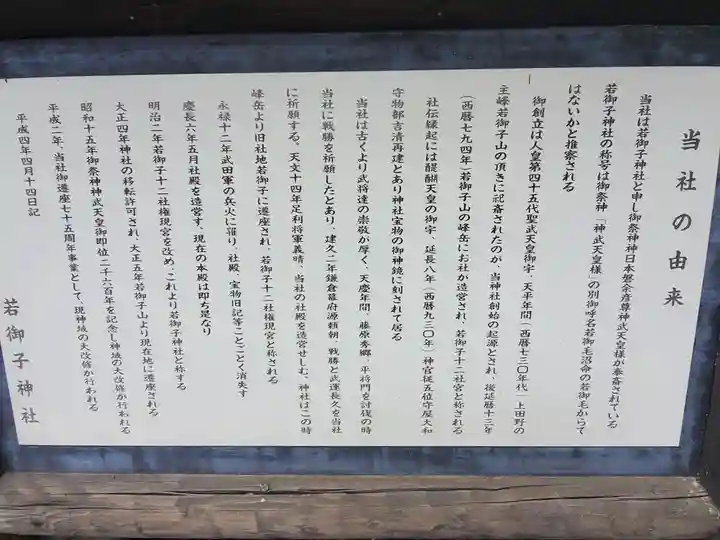 当社の由来
当社は若御子神社と申し御祭神神日本磐余彦尊神武天皇様が奉斎されている
若御子神社の称号は御祭神「神武天皇様」の別御呼名若御毛沼命の若御毛からて
はないかと推察される
御創立は人皇第四十五代聖武天皇御宇、天平年間(西暦七三〇年代)上田野の
主峰若御子山の頂きに祀斎されたのが、当神社創始の起源とされ、後延暦十三年
(西暦七九四年)若御子山の峰岳にお社が造営され、若御子十二社宮と称される
社伝縁起には醍醐天皇の御宇、延長八年(西暦九三〇年)神官従五位守屋大和
守物部吉清再建とあり神社宝物の御神鏡に刻されて居る
当社は古くより武将達の崇敬が厚く、天慶年間、藤原秀郷、平将門を討伐の時
当社に戦勝を祈願したとあり、建久二年鎌倉幕府源頼朝、戦勝と武運長久を当社
に祈願する。天文十四年足利将軍義晴、当社の社殿を造営せしむ、神社はこの時
峰岳より旧社地若御子に遷座され、若御子十二社権現宮と称される
永禄十二年武田軍の兵火に罹り、社殿、宝物旧記等ことごとく消失す
慶長六年五月社殿を造営す、現在の本殿は即ち是なり
明治二年若御子十二社権現宮を改め、これより若御子神社と称する
大正四年神社の移転許可され、大正五年若御子山より現在地に遷座される
昭和十五年御祭神神武天皇御即位二千六百年を記念し神域の大改修が行われる
平成二年、当社御遷座七十五周年事業として、現神域の大改修が行われる
平成四年四月十四日記
若御子神社